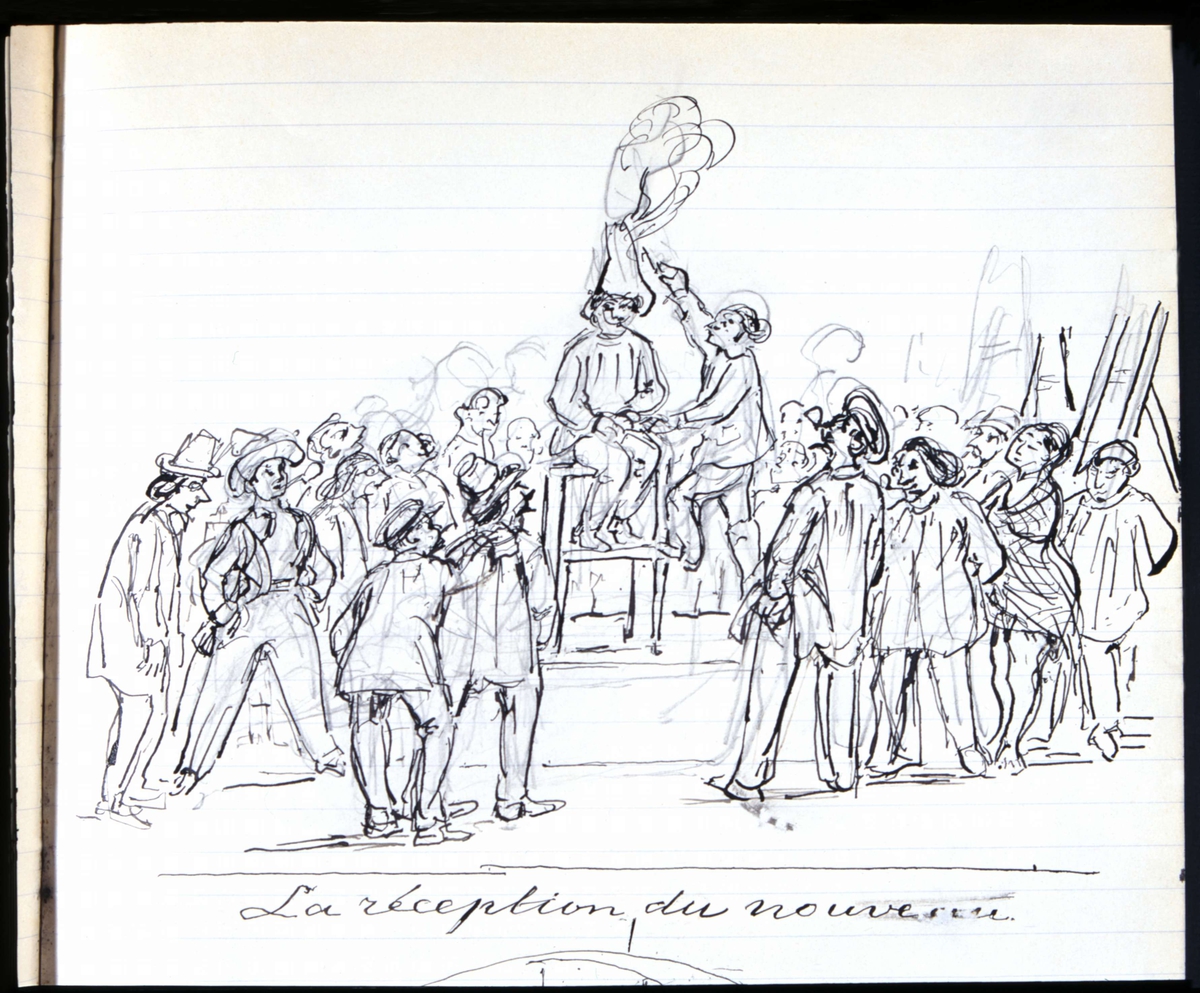 La réception du nouveau.